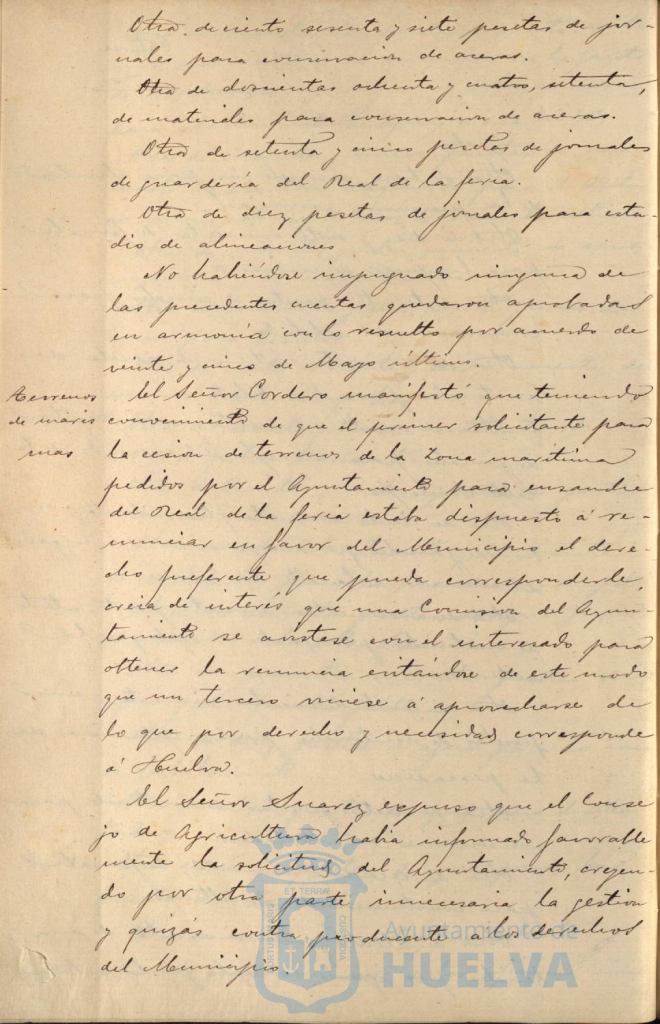 Otra de ciento sesenta y siete pesetas de jor-
nales para conservacion de aceras.
Otra de doscientas ochenta y cuatro, setenta,
de materiales para conservacion de aceras.
Otra de setenta y cinco pesetas de jornales
de guardería del Real de la feria.
Otra de diez pesetas de jornales para estu-
dio de alineaciones
No habiéndose impugnado ninguna de
las precedentes cuentas quedaron aprobadas
en armonía con lo resuelto por acuerdo de
veinte y cinco de Mayo último.
Terrenos
de maris
mas
El Señor Cordero manifestó que teniendo
convencimiento de que el primer solicitante para
la cesion de terrenos de la Zona marítima
pedidos por el Ayuntamiento para ensanche
del Real de la feria estaba dispuesto á re-
nunciar en favor del Municipio el dere-
cho preferente que pueda corresponderle,
creia de interés que una Comision del Ayun-
tamiento se avistase con el interesado para
obtener la renuncia evitándose de este modo
que un tercero viniese á aprovecharse de
lo que por derecho y necesidad corresponde
á Huelva.
El Señor Suarez expuso que el Conse
jo de Agricultura habia informado favorable
mente la solicitud del Ayuntamiento, creyen-
do por otra parte innecesaria la gestion
y quizás contra producente a los derechos
del Municipio.
Ayuntamiento de
HUELVA